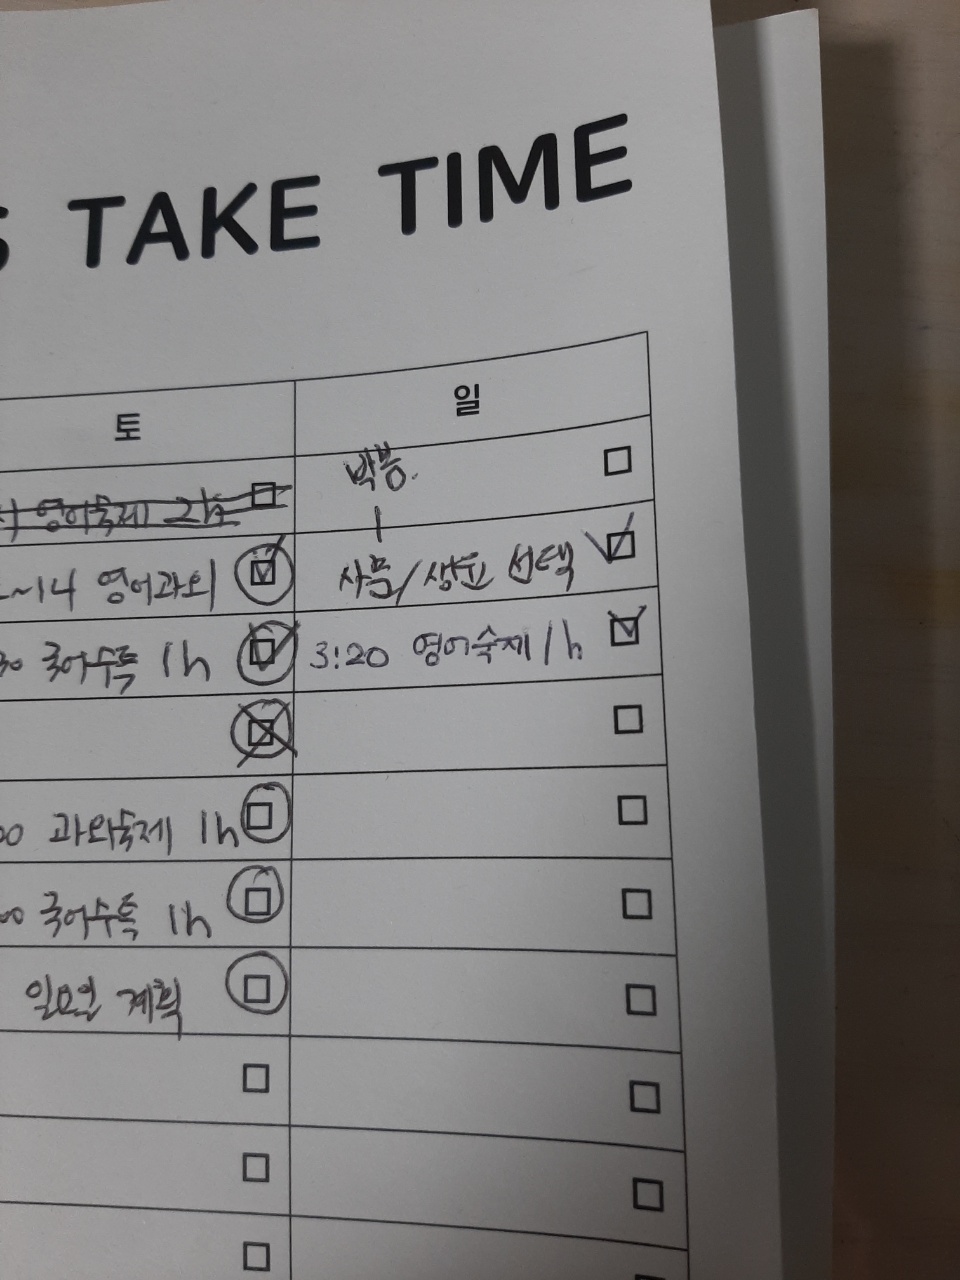 S TAKE TIME
토 일
영어숙제 2h
~14 영어과외
30 국어수특 1h
00 과외숙제 1h
00 국어수특 1h
일요일 계획
박봉.
사문/생윤 선택
3:20 영어숙제 1h.